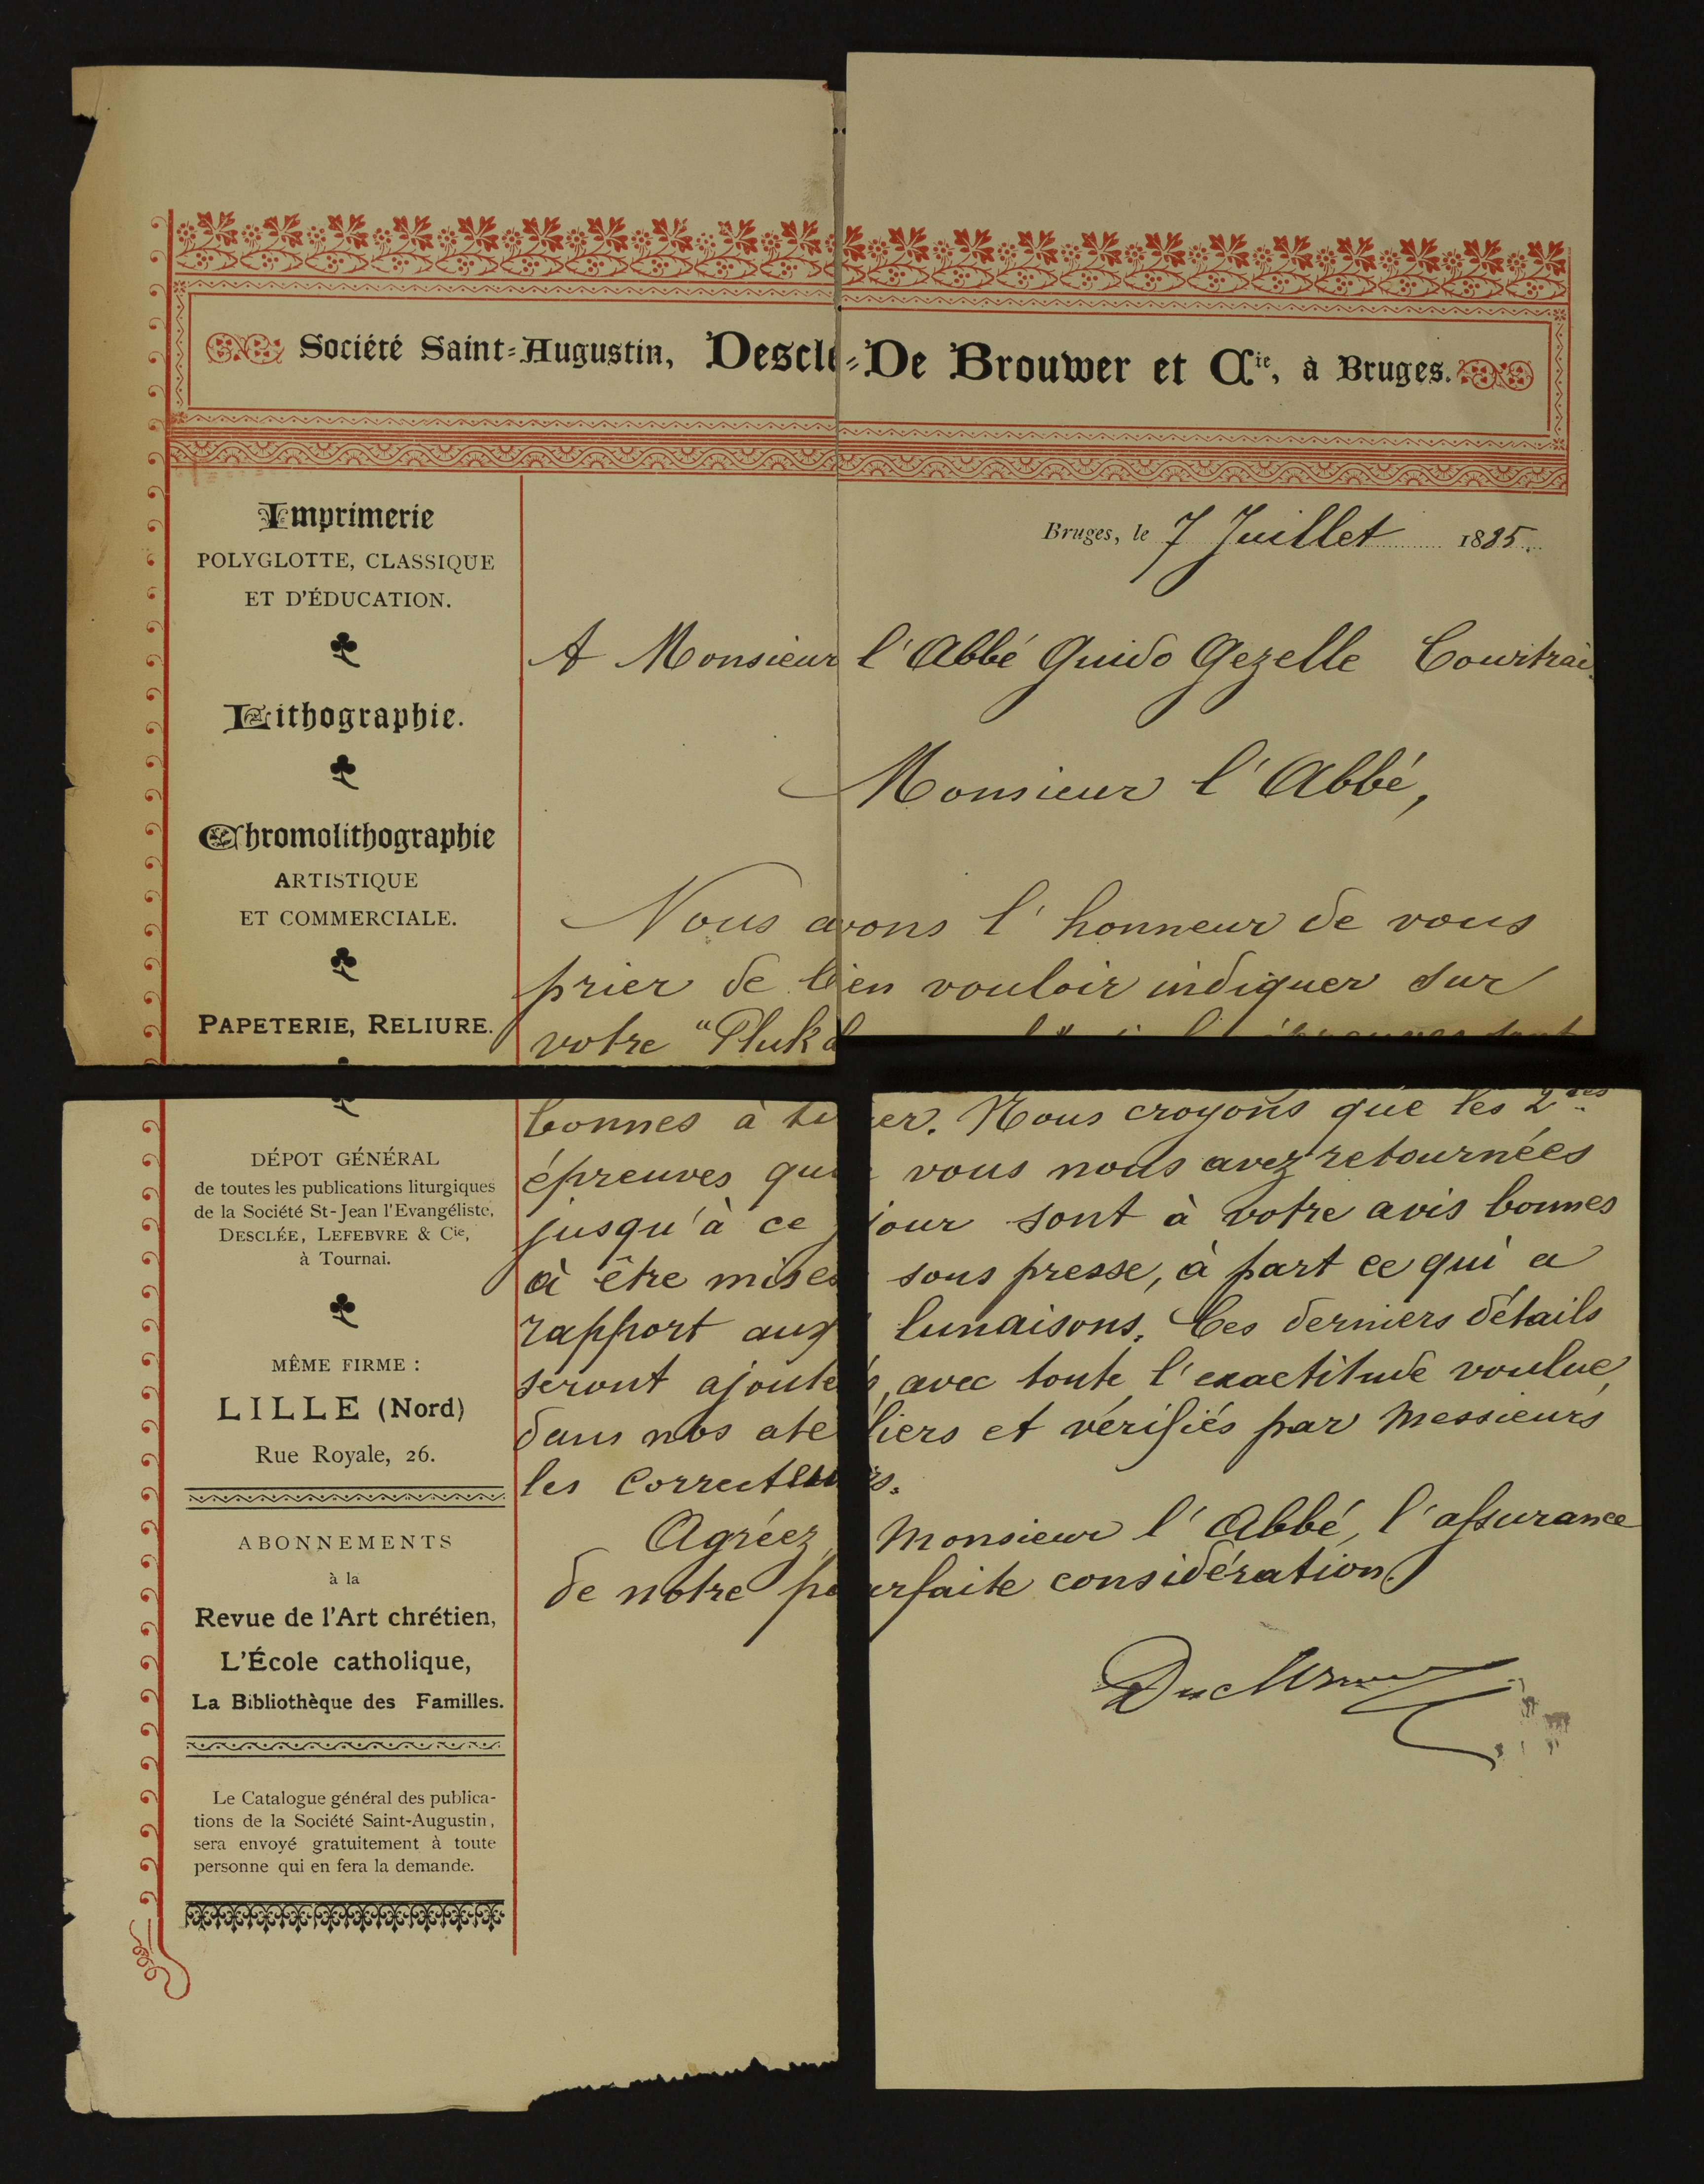 Société Saint-Augustin, Desclé-De Brouwer et Cie, à Bruges.
Imprimerie
POLYGLOTTE, CLASSIQUE
ET D'ÉDUCATION.
Lithographie.
Chromolithographie
ARTISTIQUE
ET COMMERCIALE.
PAPETERIE, RELIURE.
DÉPOT GÉNÉRAL
de toutes les publications liturgiques
de la Société St-Jean l'Evangéliste,
DESCLÉE, LEFEBVRE & Cie,
à Tournai.
MÊME FIRME :
LILLE (Nord)
Rue Royale, 26.
ABONNEMENTS
à la
Revue de l'Art chrétien,
L'École catholique,
La Bibliothèque des Familles.
Le Catalogue général des publica-
tions de la Société Saint-Augustin,
sera envoyé gratuitement à toute
personne qui en fera la demande.
Bruges, le 7 Juillet 1885.
A Monsieur l'Abbé Guido Gezelle Courtrai
Monsieur l'Abbé,
Nous avons l'honneur de vous
prier de bien vouloir indiquer sur
votre "Pluk épreuves sont
bonnes à tirer. Nous croyons que les 2des
épreuves que vous nous avez retournées
jusqu'à ce jour sont à votre avis bonnes
à être mises sous presse, à part ce qui a
rapport aux lunaisons. Ces derniers détails
seront ajoutés, avec toute l'exactitude voulue,
dans nos ateliers et vérifiés par Messieurs
les Correcteurs.
Agréez, Monsieur l'Abbé, l'assurance
de notre parfaite considération